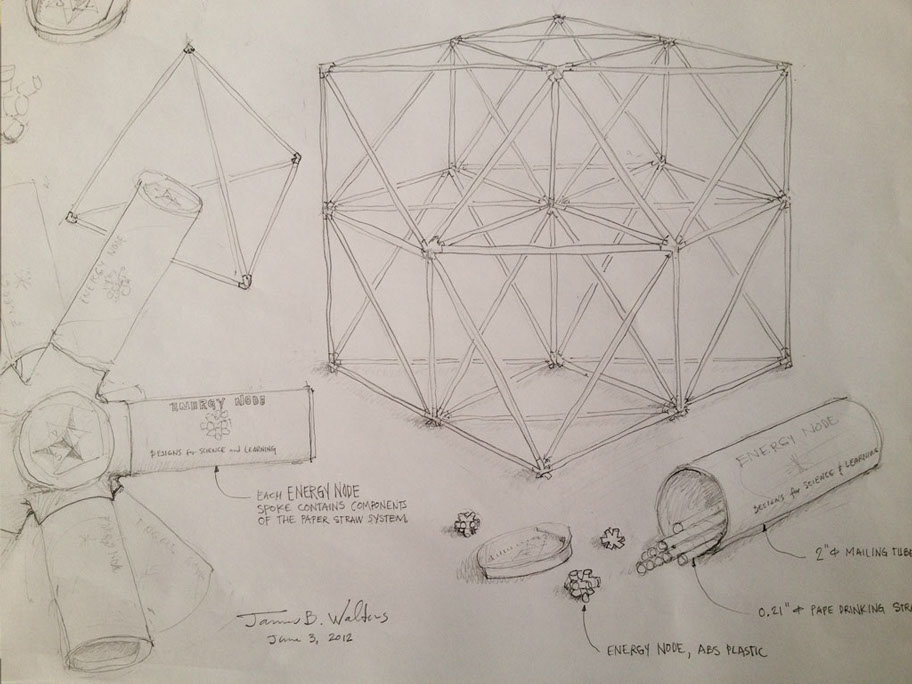 ENERGY NODE
ENERGY NODE
DESIGNS for SCIENCE and LEARNING
EACH ENERGY NODE
SPOKE CONTAINS COMPONENTS
OF THE PAPER STRAW SYSTEM.
James B. Walters
June 3, 2012
ENERGY NODE
DESIGNS for SCIENCE & LEARNING
2"φ MAILING TUBE
0.21" φ PAPE DRINKING STRA
ENERGY NODE, ABS PLASTIC